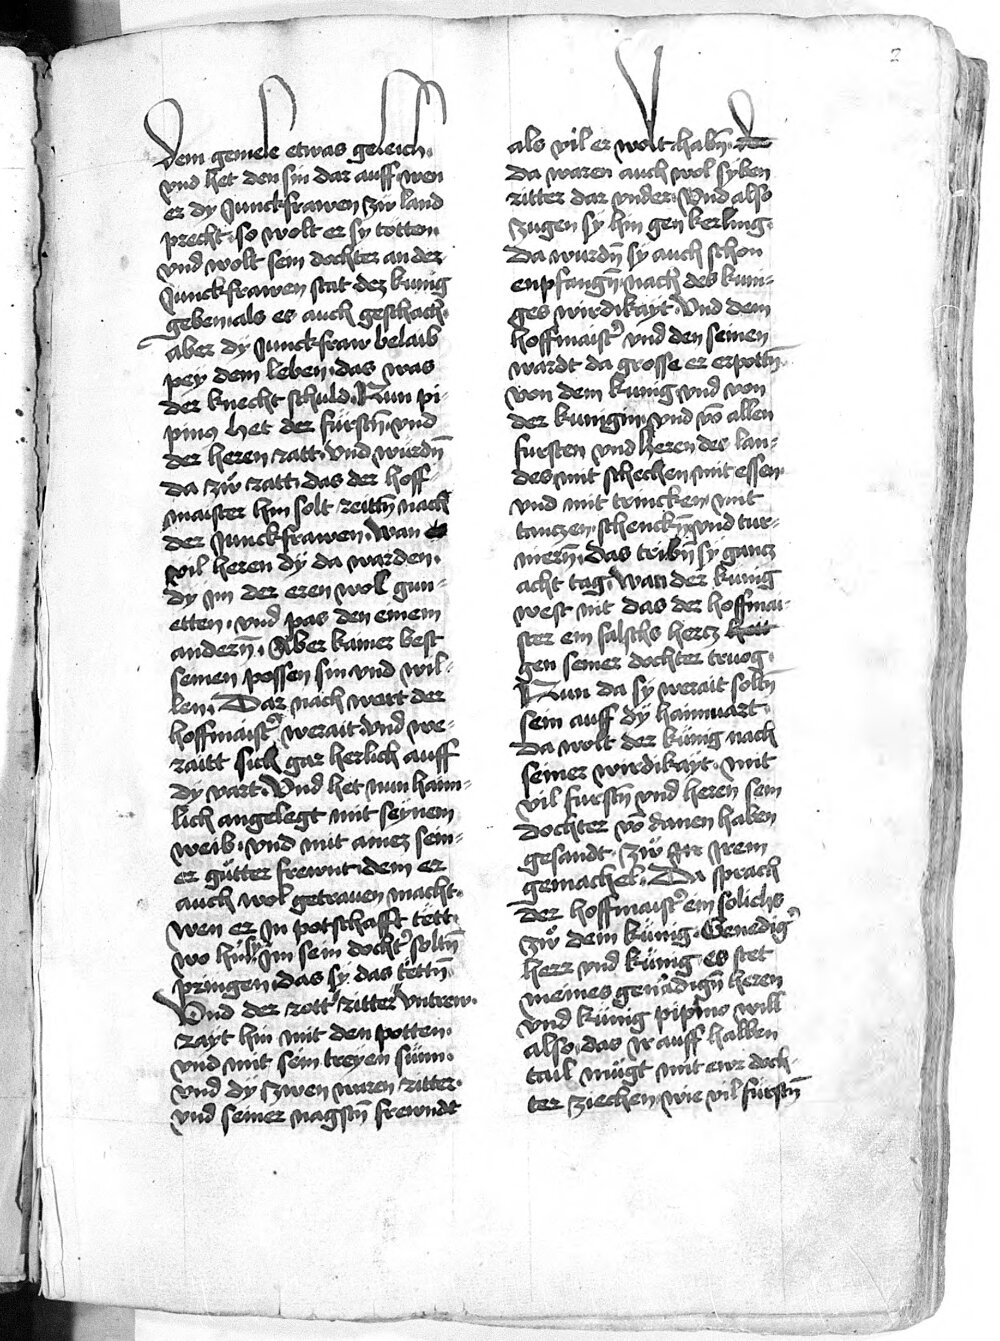 2
dem gemele etwas geleich.
vnd het den sin dar auff wen
er dy Junckfrawen zw land
precht. so wolt er sy totten.
vnd wolt sein dochter an der
Junckfrawen stat dez kunig
geben. als es auch geschach.
aber dy Junckfraw belaib
pey dem leben. das was
der knecht schuld. Nun pi-
pinus het der fürstn̄. vnd
der heren ratt. vnd wurdn̄
da zw ratt. das der hoff-
maister hin solt reittn̄ nach
der Junckfrawen. Wan
vil heren dy da warden.
dy im der eren wol gun-
etten. vnd pas den einem
andern̄. Aber kainer best
seinen possen sin vnd wil-
len. Dar nach wert der
hoffmaistˀ werait. vnd we-
raitt sich gar herlich auff
dy vart. Vnd het nun haim-
lich angelegt mit seynem
weib. vnd mit ainez sein-
er gütter frewnt. dem er
auch wol getrauen macht.
wen er in potschafft tett.
wo hin sy im sein dochtˀ soltn̄
pringen. das sy das tettn̄.
Vnd der rott ritter vntrew.
rayt hin mit den potten.
vnd mit sein treyen sünn.
vnd dy zwen waren ritter.
vnd seiner nagstn̄ frewndt
als vil er wolt habn̄.
da waren auch wol syben
ritter dar vnder. Vnd also
zugen sy hin gen kerling.
da wurdn̄ sy auch schon
enpfangn̄. nach des kuni-
ges wirdikayt. Vnd dem
hoffmaistˀ vnd den seinen
wardt da grosse er erpottn̄.
von dem kunig vnd von
der kunigin. vnd vō allen
fursten vnd heren des lan-
des mit schecken mit essen
vnd mit trincken. mit
tanczen. schenckn̄. vnd tur-
niern̄. das tribn̄ sy gancz
acht tag. Wan der kunig
west nit das der hoffmai-
ster ein falschs hercz
gen seiner dochter truog.
Nun da sy werait soltn̄
sein auff dy haimuart.
da wolt der künig nach
seiner wirdikayt. mit
vil furstn̄ vnd heren sein
dochter vō danen haben
gesandt. zw irem
gemachel. Da sprach
der hoffmaistˀ ein solichs
zw dem künig. Genedigˀ
herr vnd künig es stet
meines genadign̄ heren
vnd künig pipino will
also. das ir auff halben
tail mügt mit ewr doch-
ter ziechen. wie vil fürstn̄